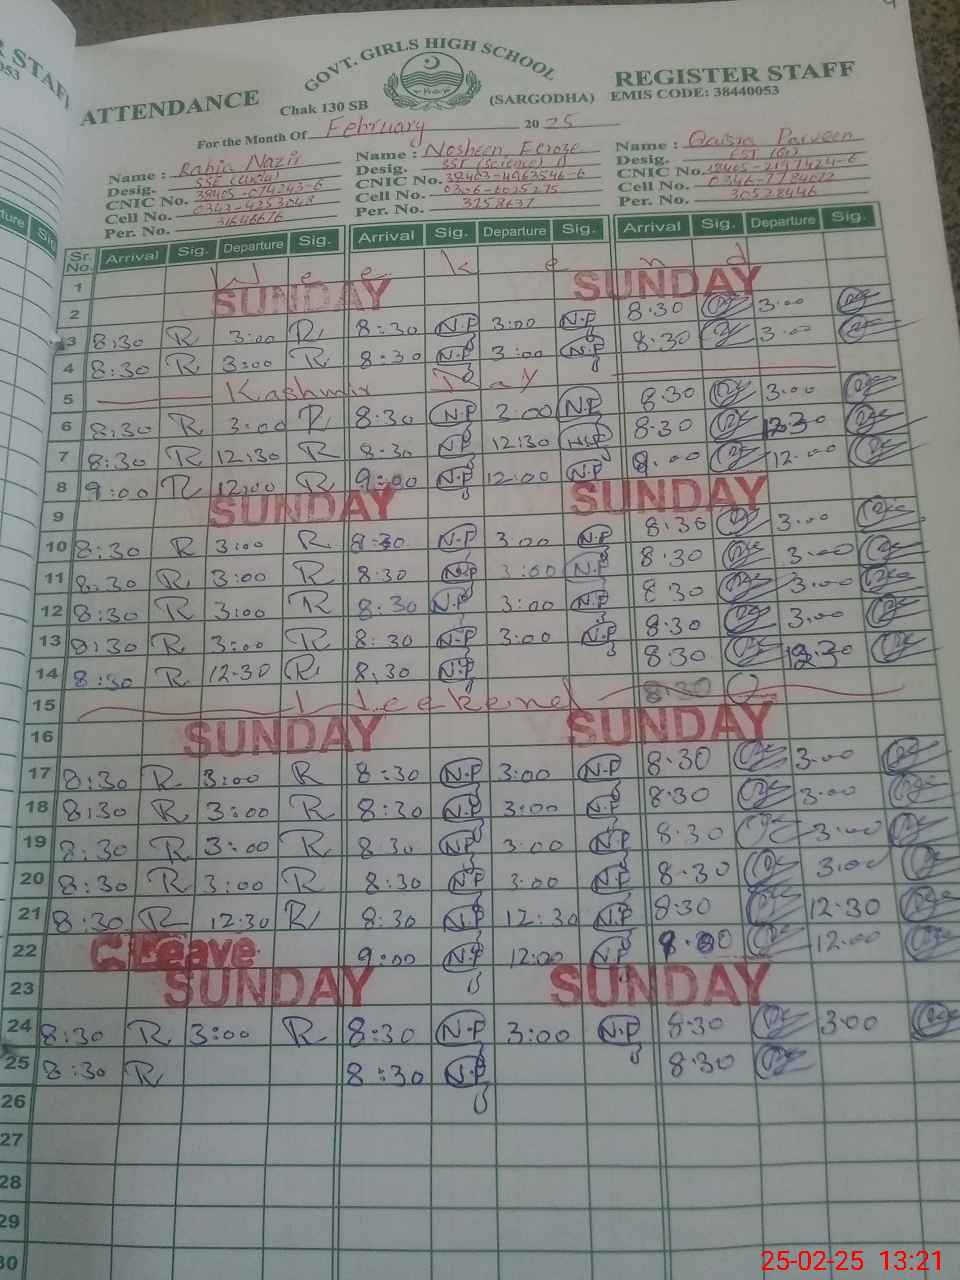 R STAFF
053
GOVT. GIRLS HIGH SCHOOL
ATTENDANCE Chak 130 SB (SARGODHA) REGISTER STAFF
EMIS CODE: 38440053
For the Month Of February 2025
Name : Rabia Nazir Name : Nosheen Feroze Name : Qaisra Parveen
Desig. Desig. SST (Science) Desig.
CNIC No. CNIC No. CNIC No.
Cell No. Cell No. Cell No.
Per. No. 31646676 Per. No. Per. No. 30528446
Sr. No. Arrival Sig. Departure Sig. Arrival Sig. Departure Sig. Arrival Sig. Departure Sig.
1 Weekend
2 SUNDAY SUNDAY
3 8:30 R 3:00 R 8:30 N.P 3:00 N.P 8.30 3.00
4 8:30 R 3:00 R 8:30 N.P 3:00 N.P 8.30 3.00
5 Kashmir Day
6 8:30 R 3:00 R 8:30 N.P 3:00 N.P 8.30 3.00
7 8:30 R 12:30 R 8:30 N.P 12:30 N.P 8.30 12.30
8 9:00 R 12:00 R 9:00 N.P 12:00 N.P 9.00 12.00
9 SUNDAY SUNDAY
10 8:30 R 3:00 R 8:30 N.P 3:00 N.P 8.30 3.00
11 8:30 R 3:00 R 8:30 N.P 3:00 N.P 8.30 3.00
12 8:30 R 3:00 R 8:30 N.P 3:00 N.P 8.30 3.00
13 8:30 R 3:00 R 8:30 N.P 3:00 N.P 8.30 3.00
14 8:30 R 12:30 R 8:30 N.P 8.30 12.30
15 Weekend 8:30
16 SUNDAY SUNDAY
17 8:30 R 3:00 R 8:30 N.P 3:00 N.P 8.30 3.00
18 8:30 R 3:00 R 8:30 N.P 3:00 N.P 8.30 3.00
19 8:30 R 3:00 R 8:30 N.P 3:00 N.P 8.30 3.00
20 8:30 R 3:00 R 8:30 N.P 3:00 N.P 8.30 3.00
21 8:30 R 12:30 R 8:30 N.P 12:30 N.P 8.30 12.30
22 C.Leave 9:00 N.P 12:00 N.P 12.00
23 SUNDAY SUNDAY
24 8:30 R 3:00 R 8:30 N.P 3:00 N.P 8.30 3.00
25 8:30 R 8:30 N.P 8.30
26
27
28
29
30
25-02-25 13:21